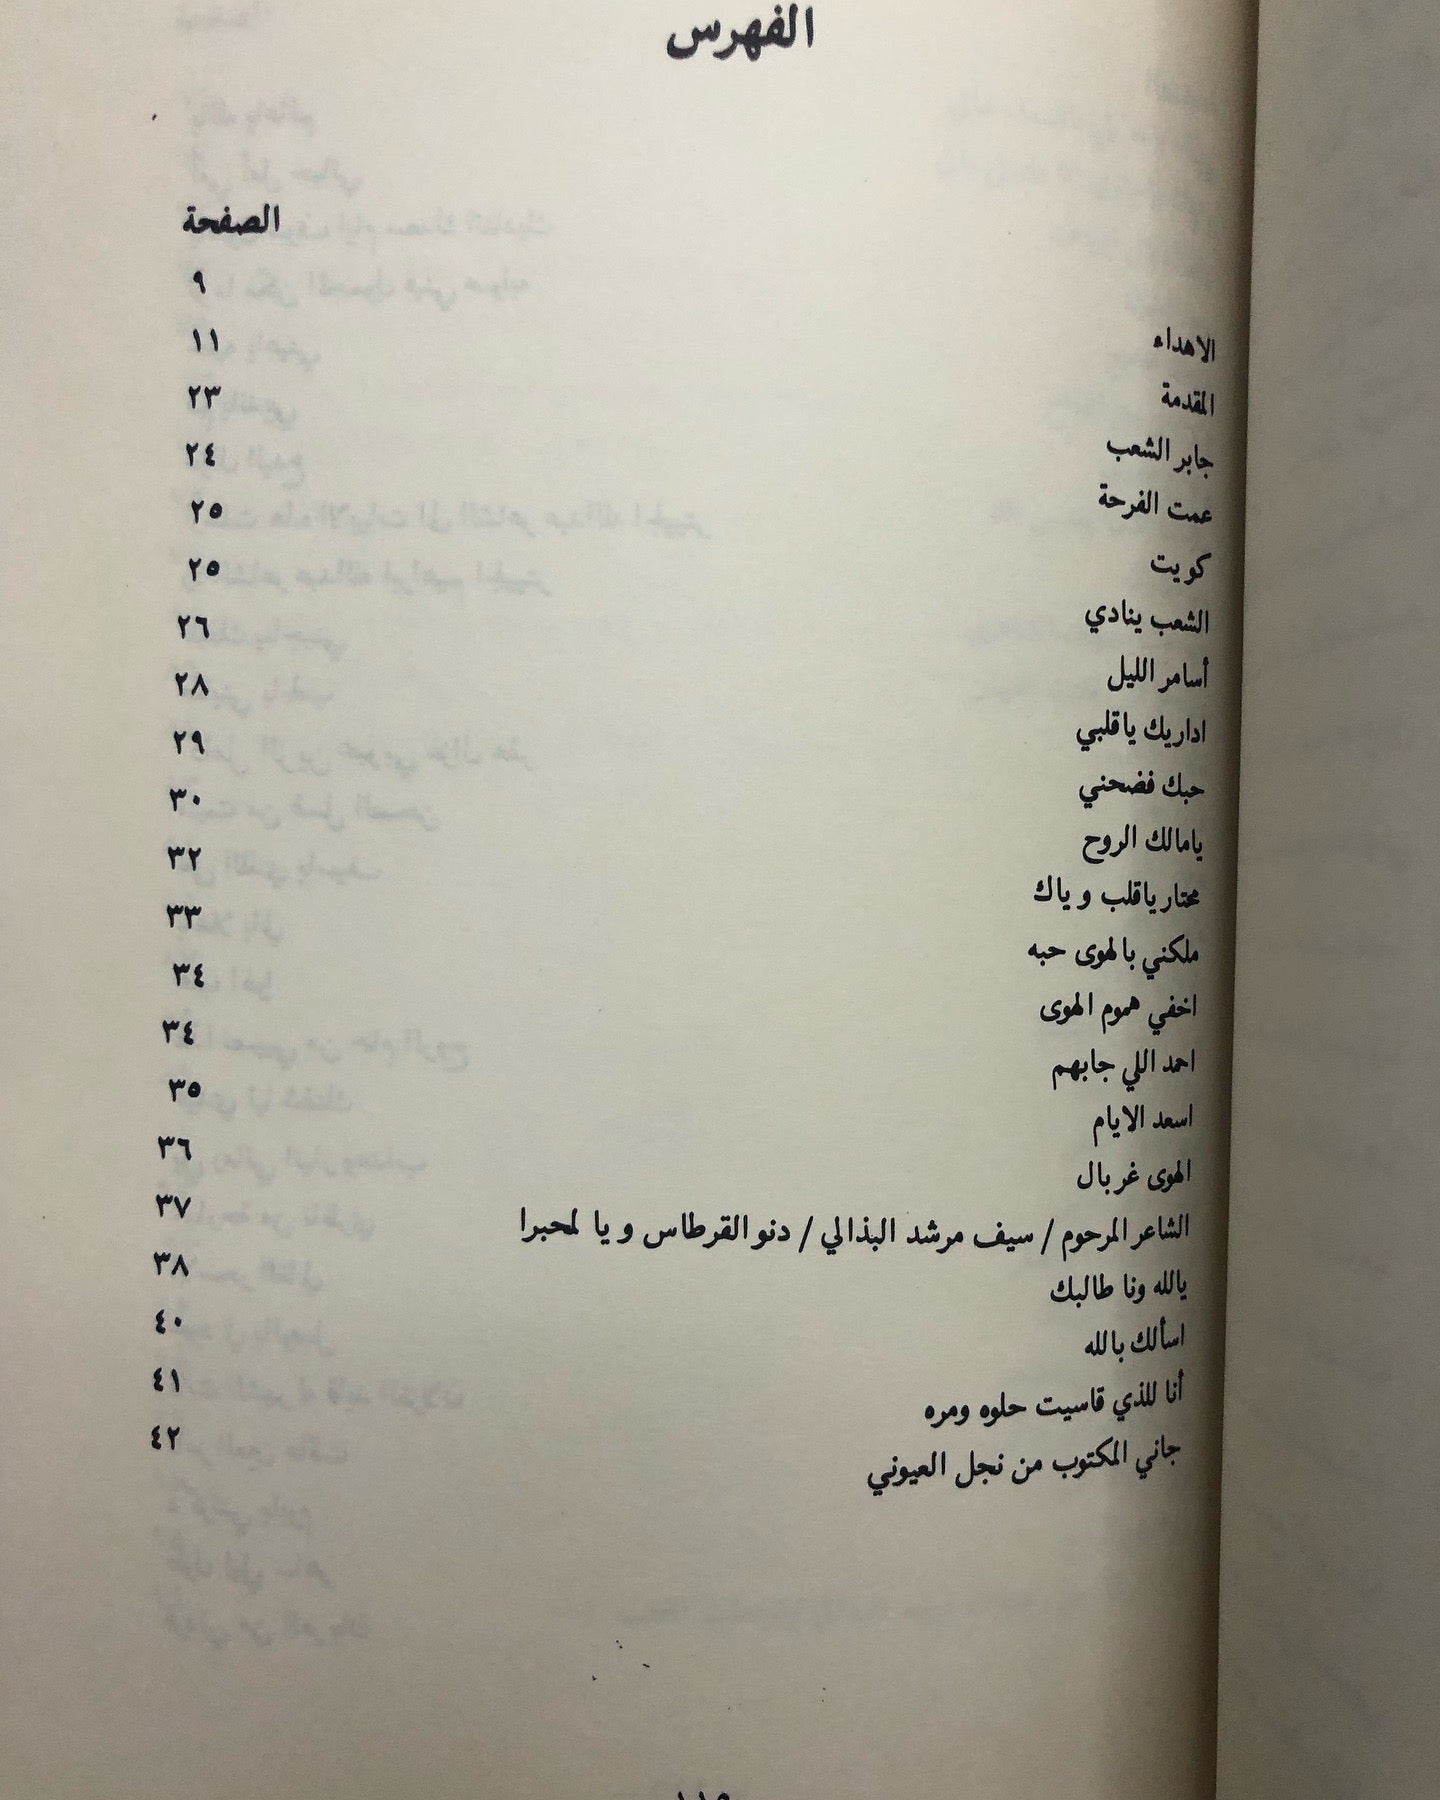 الفهرس
الصفحة
الاهداء ٩
المقدمة ١١
جابر الشعب ٢٣
عمت الفرحة ٢٤
كويت ٢٥
الشعب ينادي ٢٥
أسامر الليل ٢٦
اداريك ياقلبي ٢٨
حبك فضحني ٢٩
يامالك الروح ٣٠
محتار ياقلب وياك ٣٢
ملكني بالهوى حبه ٣٣
اخفي هموم الهوى ٣٤
احمد اللي جابهم ٣٤
اسعد الايام ٣٥
الهوى غربال ٣٦
الشاعر المرحوم / سيف مرشد البذالي / دنو القرطاس ويا لمحبرا ٣٧
يالله ونا طالبك ٣٨
اسألك بالله ٤٠
أنا للذي قاسيت حلوه ومره ٤١
جاني المكتوب من نجل العيوني ٤٢